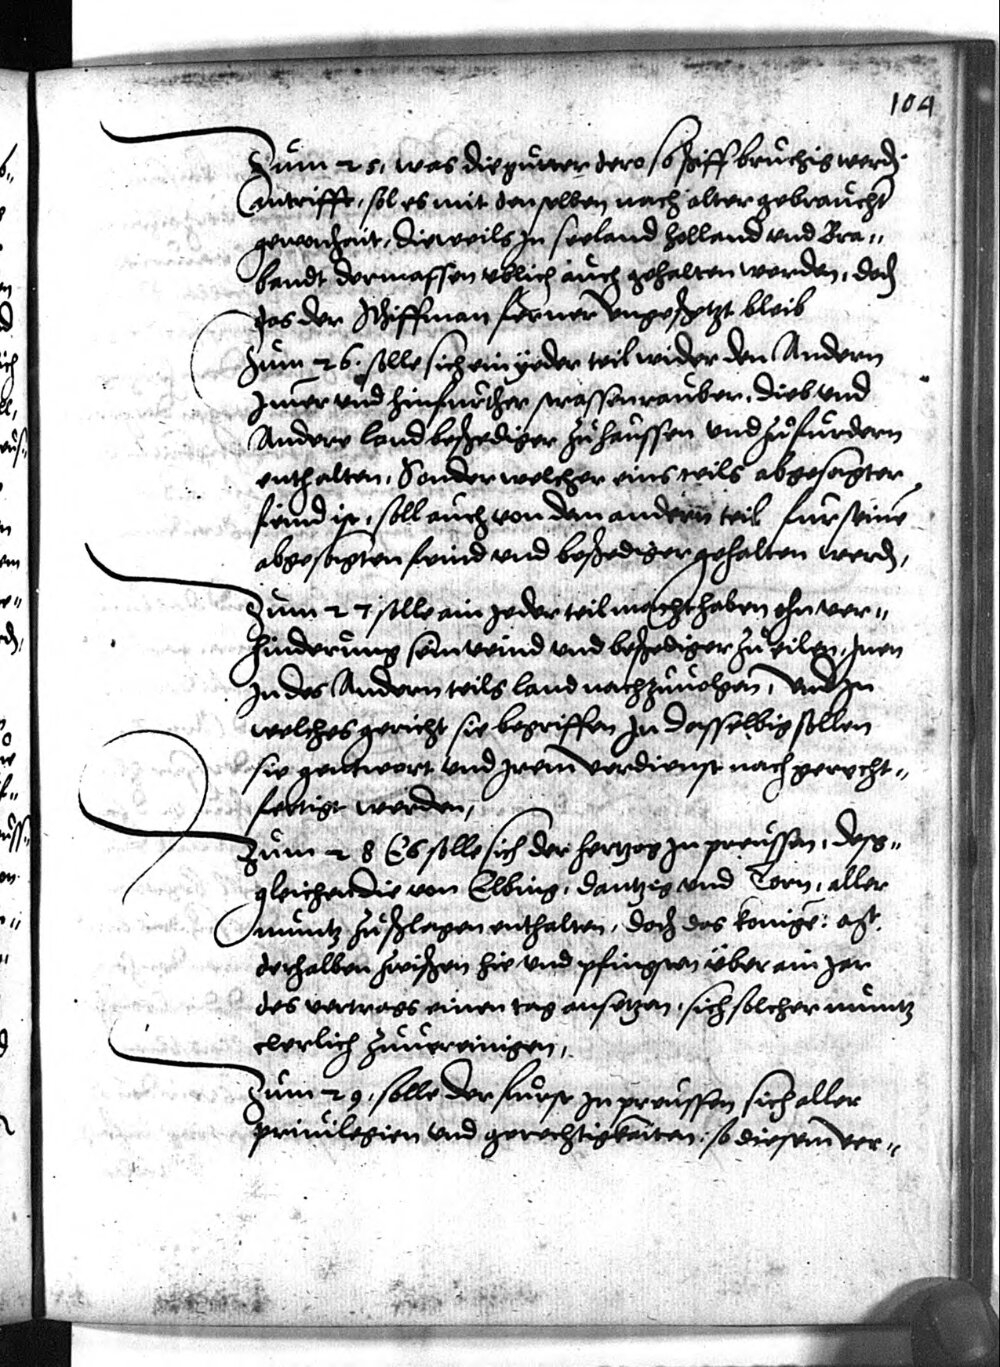 104
Zum 25. was die gutter dero so schiffbruchig werd.
antrifft, sol es mit denselben nach alter gebraucht
gewonhait, dieweils In seeland holland und Bra-
bandt dermassen ublich auch gehalten worden, doch
das der Schiffman ferner ungeschetzt bleib
Zum 26. solle sich ein yeder teil wider den Andern
Imer und hinfurther strassenrauber, dieb und
Andere landbeschediger zu haussen und zu furdern
enthalten, Sonder welcher eins teils abgesagter
feind ist, soll auch von dem andern teil fur seine
abgesagten feind und beschediger gehalten werd,
Zum 27 solle ain jeder teil macht haben ohn ver-
hinderung seim veind und beschediger zu eilen, Inen
In des Andern teils land nachzuvolgen, und In
welches gericht sie begriffen In dasselbig sollen
sie geantwort und Irem verdienst nach gerecht-
fertigt werden,
Zum 28 Es solle sich der hertzog In preussen, desg-
gleichen die von Elbing, dantzig und Torn, aller
muntz zu schlagen enthalten, doch das konige: acht.
derhalben zwischen hie und pfingsten uber ain Jar
des vertrags einen tag ansetzen, sich solcher muntz
clerlich zuvereinigen,
Zum 29. solle der furst In preussen sich aller
privilegien und gerechtigkaiten, so diesem ver-